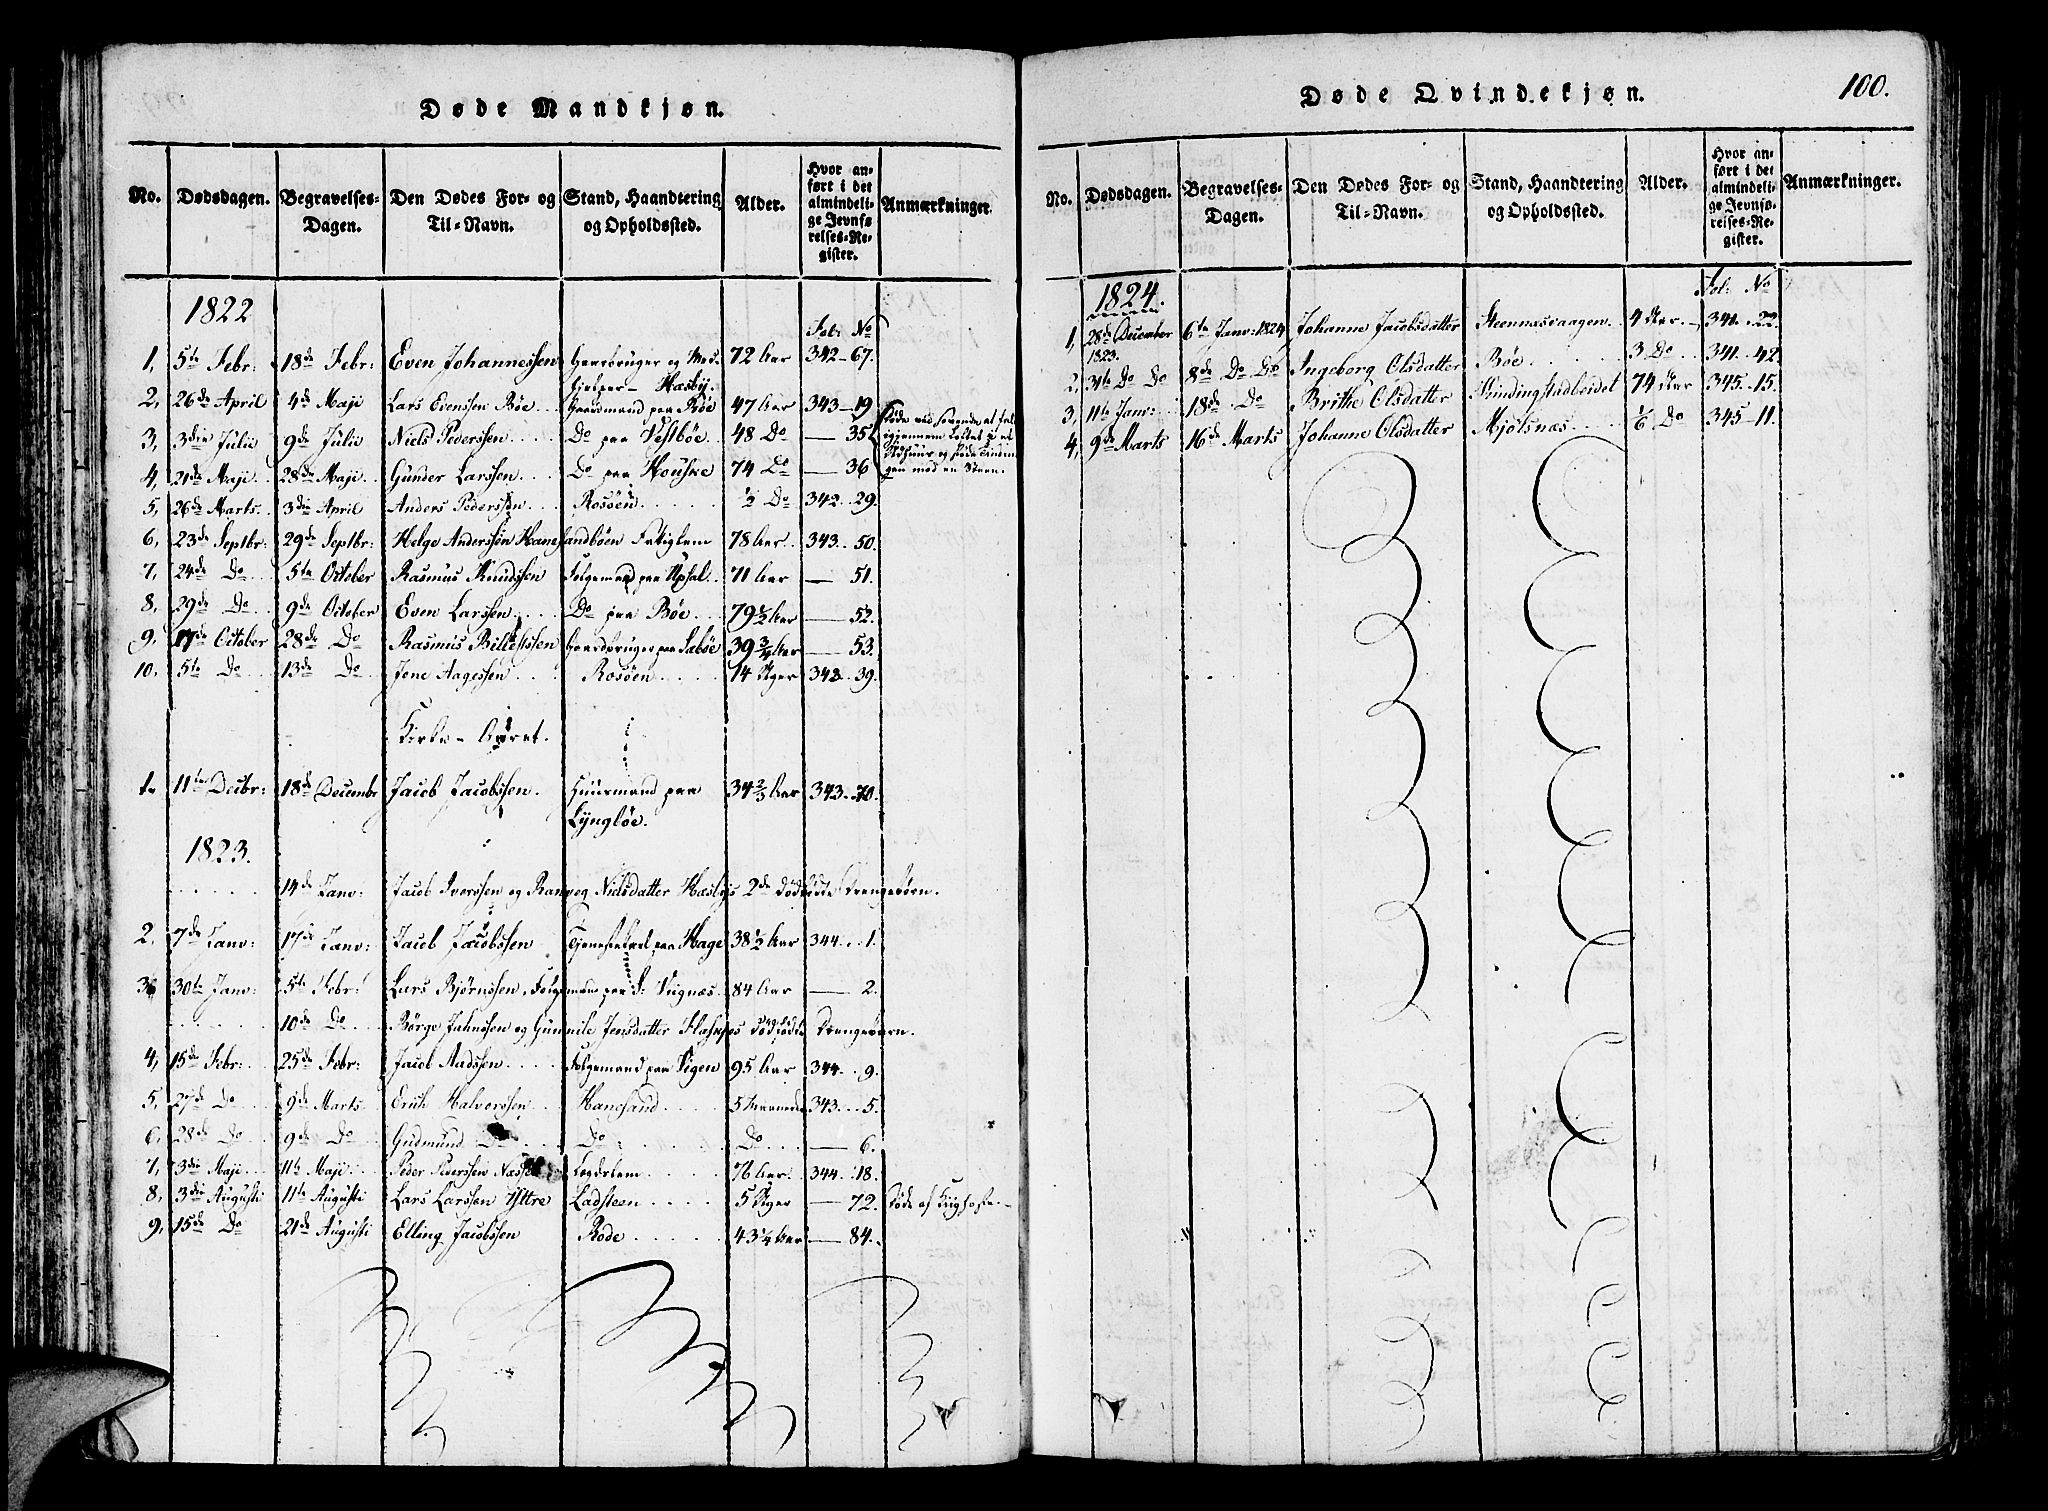 Døde Mandkjøn.
No. Dødsdagen. Begravelses-Dagen. Den Dødes For- og Til-Navn. Stand, Haandtering og Opholdssted. Alder. Hvor anført i det almindelige Jevnførelses-Register. Anmærkninger.
1822
Fol: No
1, 5te Febr: 18de Febr: Even Johannessen Gaardbruger og Med- 72 Aar 342 - 67.
hjelper - Hæsbÿ.
2, 26de April 4de Maji Lars Evenssen Bøe Gaardmand paa Bøe 47 Aar 343 - 19
3, 3die Julii 9de Julii Niels Pederssen Do paa Vestbøe 48 Do — 35
4, 21de Maji 28de Maji Gunder Larssen Do paa Houske 74 Do — 36
5, 26de Marts 3die April Anders Pederssen Rosøen ½ Do 342 29.
6, 23de Septbr: 29de Septbr: Helge Anderssen Hanesandbøen Fattiglem 78 Aar 343 50.
7, 24de Do 5te October Rasmus Knudssen Folgemand paa Opsal 71 Aar — 51.
8, 29de Do 9de October Even Larssen Do paa Bøe 79½ Aar — 52.
9, 17de October 28de Do Rasmus Gaardbruger paa Søebøe 39¾ Aar — 53.
10, 5te Do 13de Do Jone Aagessen Rosøen 14 Uger 342 39.
Kirke-Aaret.
1. 11te Decbr: 18de Decembr Jacob Jacobssen Huusmand paa 34⅔ Aar 343 70.
Lyngbøe.
1823.
14de Janv: Jacob Iverssen og Ranveg Nielsdatter Hæsbÿs 2de dødfødte Drengebørn.
2. 7de Janv: 17de Janv: Jacob Jacobssen Tjenestekarl paa Hage 38½ Aar 344 1.
3 30te Janv: 5te Febr: Lars Bjørnssen, Folgemand paa S: Vignæs 84 Aar — 2.
10de Do Børge Jahnssen og Gunnile Jensdatter dødfødte Drengebarn.
4, 15de Febr: 25de Febr: Jacob Aadssen Folgemand paa Vigen 95 Aar 344 9.
5, 27de Do 9de Marts Erich Halverssen Hanesand 5 343 5.
6, 28de Do 9de Do Gudmund Do Do Do — 6.
7, 3die Maji 11te Maji Peder Pederssen Legdelem 76 Aar 344 18.
8, 3die Augusti 11te Augusti Lars Larssen Ÿttre Ladsteen 5 Uger — 72. Døde af Kighoste
9, 15de Do 21de Augusti Elling Jacobssen Rode 43¼ Aar — 84.
Døde Qvindekjøn.
100.
No. Dødsdagen. Begravelses-Dagen. Den Dødes For- og Til-Navn. Stand, Haandtering og Opholdssted. Alder. Hvor anført i det almindelige Jevnførelses-Register. Anmærkninger.
1824.
Fol: No
1, 28de December 1823. 6te Janv: 1824 Johanne Jacobsdatter Steennæsvaagen 4 Aar 341 22
2, 31te Do Do 8de Do Do Ingeborg Olsdatter Bøe 3 Do 341 42.
3, 11te Janv: 18de Do Brithe Olsdatter Kindingstadleidet 74 Aar 345 15.
4, 9de Marts 16de Marts Johanne Olsdatter Mjølsnæs ⅙ Do 345 11.